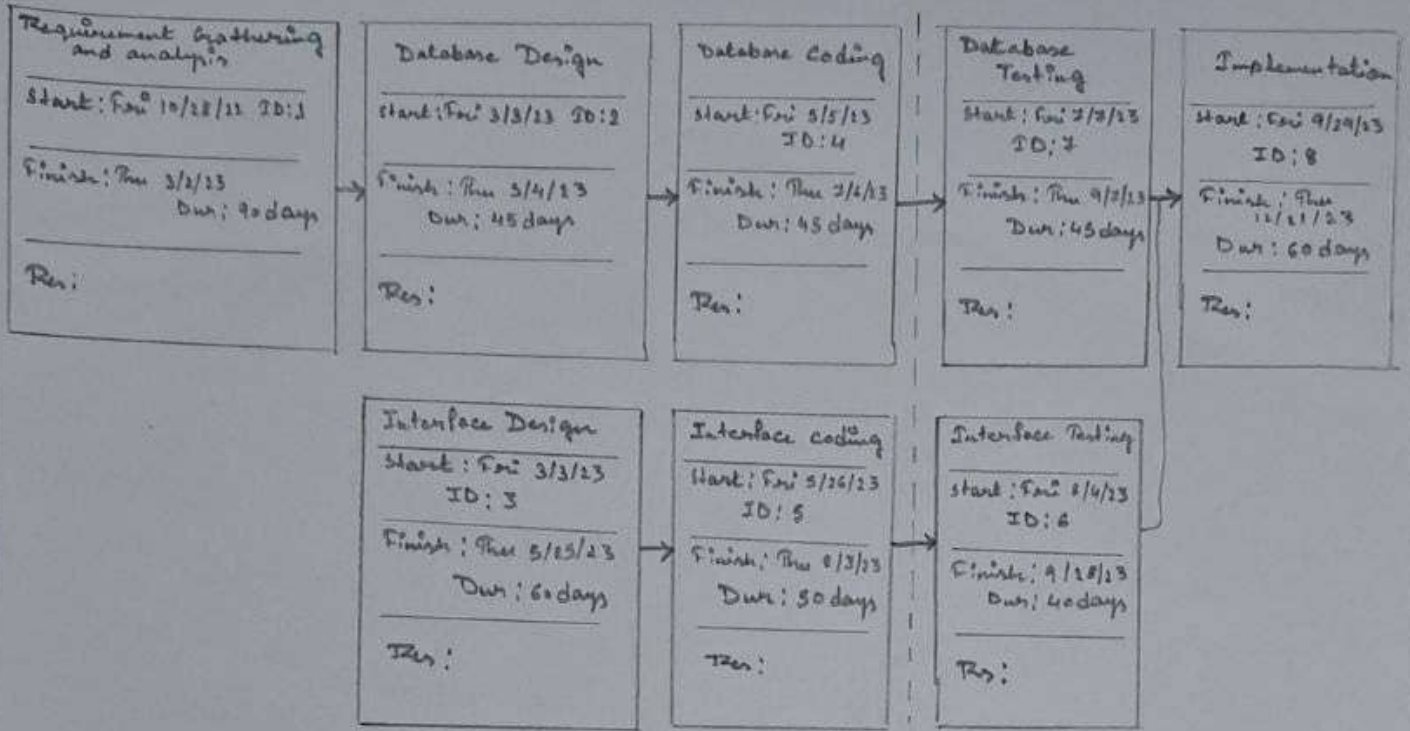 Requirement Gathering
and analysis
Start: Fri 10/28/22 ID:1
Finish: Thu 3/2/23
Dur: 90 days
Res:
Database Design
Start: Fri 3/3/23 ID:2
Finish: Thu 5/4/23
Dur: 45 days
Res:
Database Coding
Start: Fri 5/5/23
ID:4
Finish: Thu 7/6/23
Dur: 45 days
Res:
Database
Testing
Start: Fri 7/7/23
ID:7
Finish: Thu 9/7/23
Dur: 45 days
Res:
Implementation
Start: Fri 9/29/23
ID:8
Finish: Thu
12/21/23
Dur: 60 days
Res:
Interface Design
Start: Fri 3/3/23
ID: 3
Finish: Thu 5/25/23
Dur: 60 days
Res:
Interface coding
Start: Fri 5/26/23
ID:5
Finish: Thu 8/3/23
Dur: 50 days
Res:
Interface Testing
Start: Fri 8/4/23
ID:6
Finish: 9/28/23
Dur: 40 days
Res: